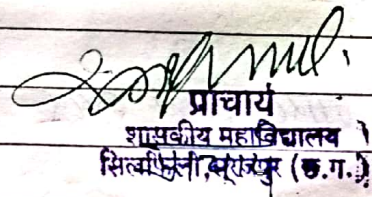 प्राचार्य
शासकीय महाविद्यालय
सिलफिली, सूरजपुर (छ.ग.)